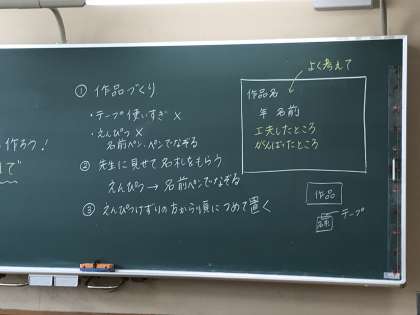 作ろう!
で
① 作品づくり
・テープ使いすぎ×
・えんぴつ×
名前ペン・ペンでなぞる
② 先生に見せて名札をもらう
えんぴつ→名前ペンでなぞる
③ えんぴつけずりの方から順につめて置く
よく考えて
作品名
年 名前
工夫したところ
がんばったところ
作品
テープ
名札